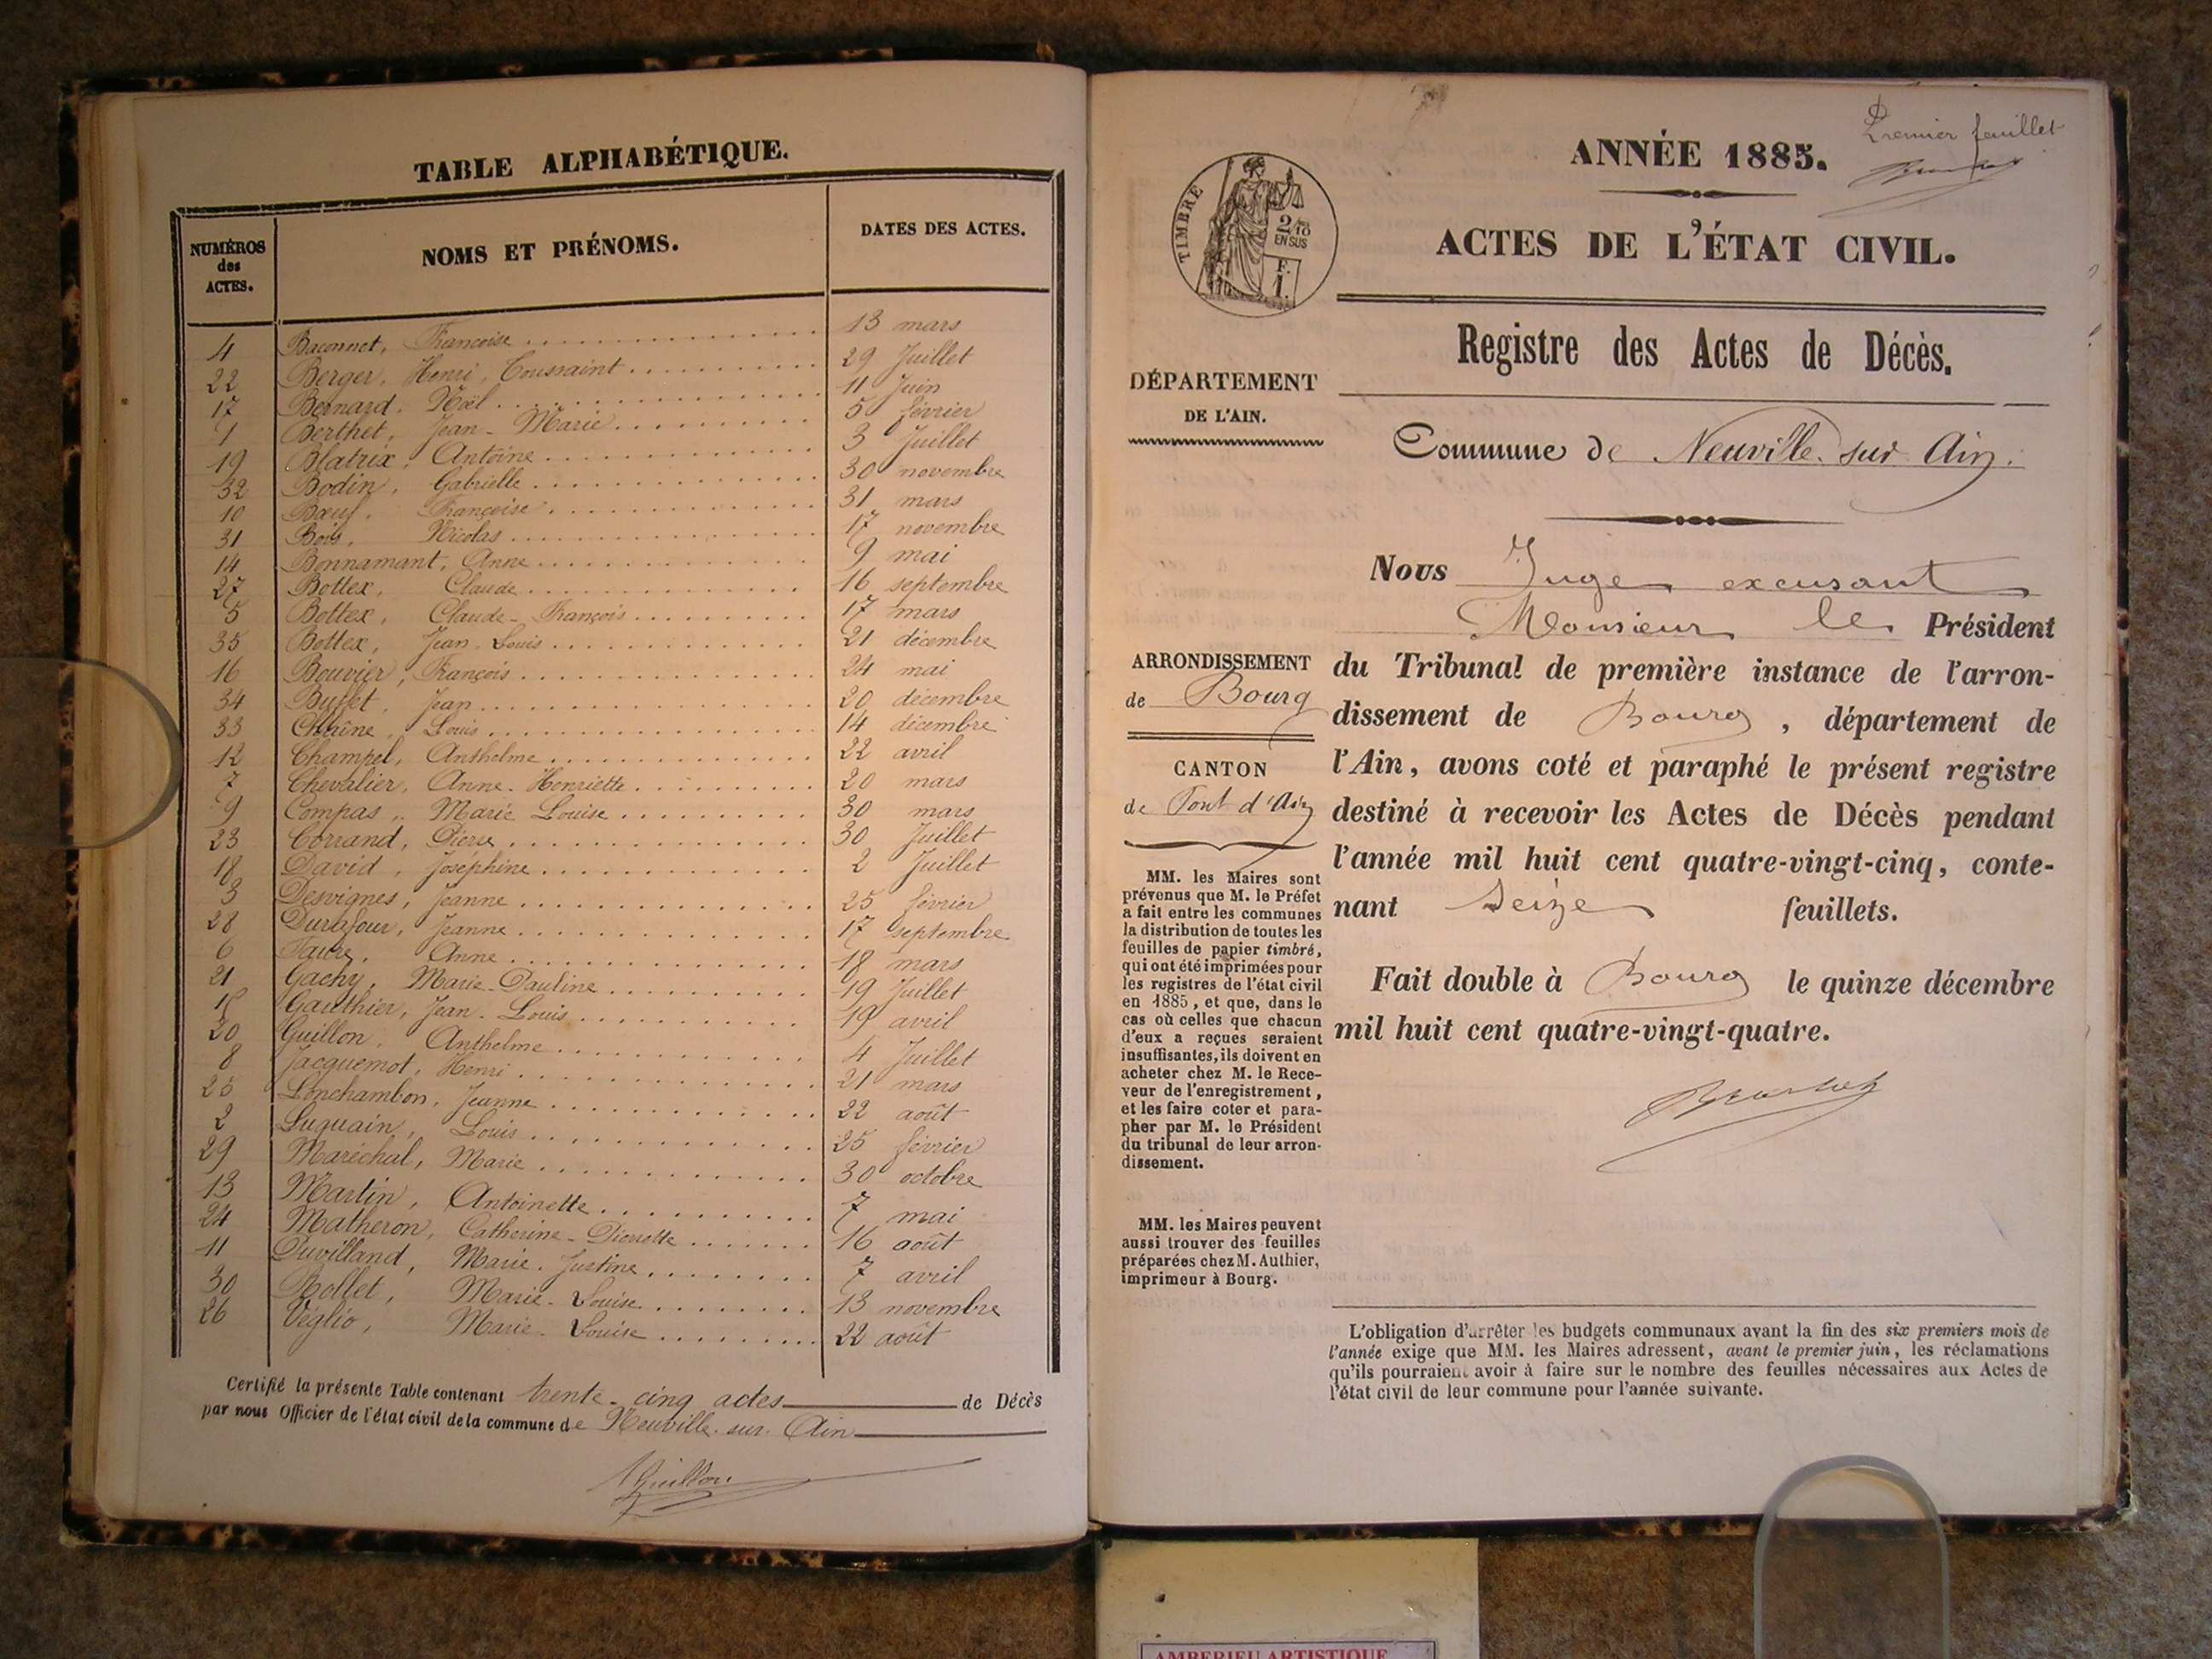 TABLE ALPHABÉTIQUE.
NUMÉROS des ACTES. NOMS ET PRÉNOMS. DATES DES ACTES.
4 Baconnet, Françoise 13 mars
22 Berger, Henri, Toussaint 29 Juillet
17 Bernard, Noël 11 Juin
1 Berthet, Jean-Marie 5 février
19 Blatrix, Antoine 3 Juillet
32 Bodin, Gabrielle 30 novembre
10 Bœuf, Françoise 31 mars
31 Bois, Nicolas 17 novembre
14 Bonnamant, Anne 9 mai
27 Bottex, Claude 16 septembre
5 Bottex, Claude-François 17 mars
35 Bottex, Jean Louis 21 décembre
16 Bouvier, François 24 mai
34 Buffet, Jean 20 décembre
33 Chaîne, Louis 14 décembre
12 Champel, Anthelme 22 avril
7 Chevalier, Anne-Henriette 20 mars
9 Compas, Marie Louise 30 mars
23 Corrand, Pierre 30 Juillet
18 David, Joséphine 2 Juillet
3 Desvignes, Jeanne 25 février
28 Durafour, Jeanne 17 septembre
6 Faure, Anne 18 mars
21 Gachy, Marie-Pauline 19 Juillet
Gauthier, Jean-Louis 19 avril
20 Guillon, Anthelme 4 Juillet
8 Jacquemot, Henri 21 mars
25 Lonchambon, Jeanne 22 août
2 Luquain, Louis 25 février
29 Maréchal, Marie 30 octobre
13 Martin, Antoinette 7 mai
24 Matheron, Catherine-Pierrette 16 août
11 Puvilland, Marie-Justine 7 avril
30 Rollet, Marie-Louise 13 novembre
26 Véglio, Marie-Louise 22 août
Certifié la présente Table contenant trente-cinq actes de Décès
par nous Officier de l'état civil de la commune de Neuville-sur-Ain
Guillon
Premier feuillet
ANNÉE 1885.
TIMBRE
2/10
EN SUS
F.
1.
ACTES DE L'ÉTAT CIVIL.
Registre des Actes de Décès.
DÉPARTEMENT
DE L'AIN.
Commune de Neuville sur Ain.
Nous Juge excusant
Monsieur le Président
du Tribunal de première instance de l'arron-
dissement de Bourg, département de
l'Ain, avons coté et paraphé le présent registre
destiné à recevoir les Actes de Décès pendant
l'année mil huit cent quatre-vingt-cinq, conte-
nant Seize feuillets.
Fait double à Bourg le quinze décembre
mil huit cent quatre-vingt-quatre.
ARRONDISSEMENT
de Bourg
CANTON
de Pont d'Ain
MM. les Maires sont
prévenus que M. le Préfet
a fait entre les communes
la distribution de toutes les
feuilles de papier timbré,
qui ont été imprimées pour
les registres de l'état civil
en 1885, et que, dans le
cas où celles que chacun
d'eux a reçues seraient
insuffisantes, ils doivent en
acheter chez M. le Rece-
veur de l'enregistrement,
et les faire coter et para-
pher par M. le Président
du tribunal de leur arron-
dissement.
MM. les Maires peuvent
aussi trouver des feuilles
préparées chez M. Authier,
imprimeur à Bourg.
L'obligation d'arrêter les budgets communaux avant la fin des six premiers mois de
l'année exige que MM. les Maires adressent, avant le premier juin, les réclamations
qu'ils pourraient avoir à faire sur le nombre des feuilles nécessaires aux Actes de
l'état civil de leur commune pour l'année suivante.
AMBERIEU ARTISTIQUE